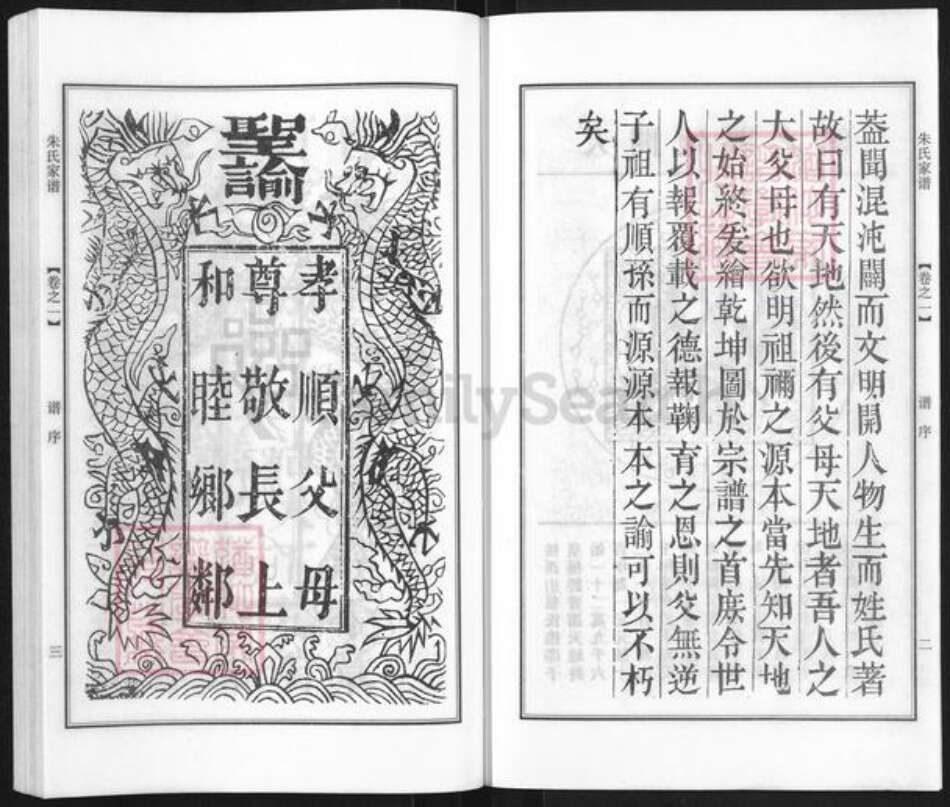 朱氏家谱
【卷之一】
谱序
二
葢聞混沌闢而文明開人物生而姓氏著
故曰有天地然後有父母天地者吾人之
大父母也欲明祖禰之源本當先知天地
之始終爰繪乾坤圖於宗譜之首庶令世
人以報覆載之德報鞠育之恩則父無逆
子祖有順孫而源源本本之諭可以不朽
矣
聖諭
孝順父母
尊敬長上
和睦鄉鄰
朱氏家谱
【卷之一】
谱序
三